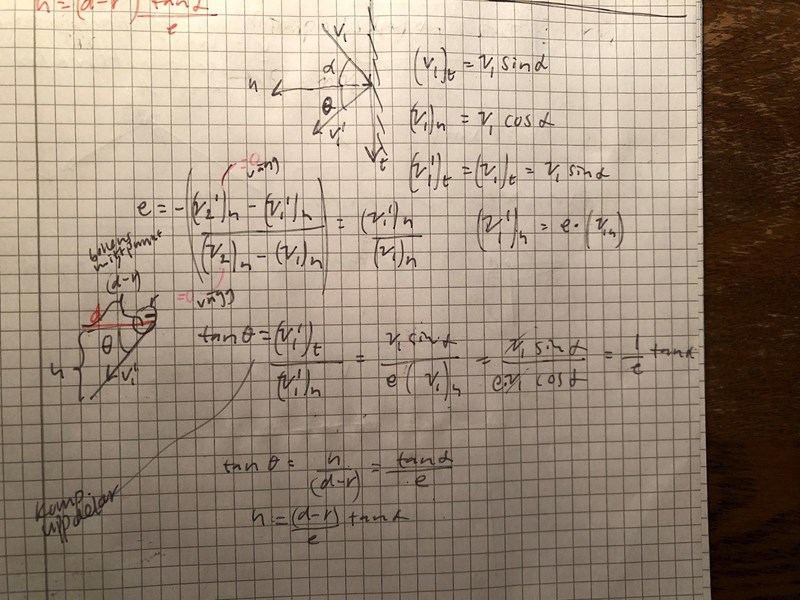 h = (d-r) tanα / e
v₁
α
n
θ
v₁'
t
(v₁)t = v₁ sinα
(v₁)n = v₁ cosα
(v₁')t = (v₁)t = v₁ sinα
(v₁')n = e·(v₁n)
=0 vägg
e = -( (v₂')n - (v₁')n / (v₂)n - (v₁)n ) = (v₁')n / (v₁)n
=0 vägg
bollens mittpunkt
(d-r)
d
r
θ
h
v₁'
tanθ = (v₁')t / (v₁')n = v₁ sinα / e (v₁)n = v₁ sinα / e v₁ cosα = 1/e tanα
tanθ = h / (d-r) = tanα / e
h = (d-r) / e tanα
Komp. uppdelar